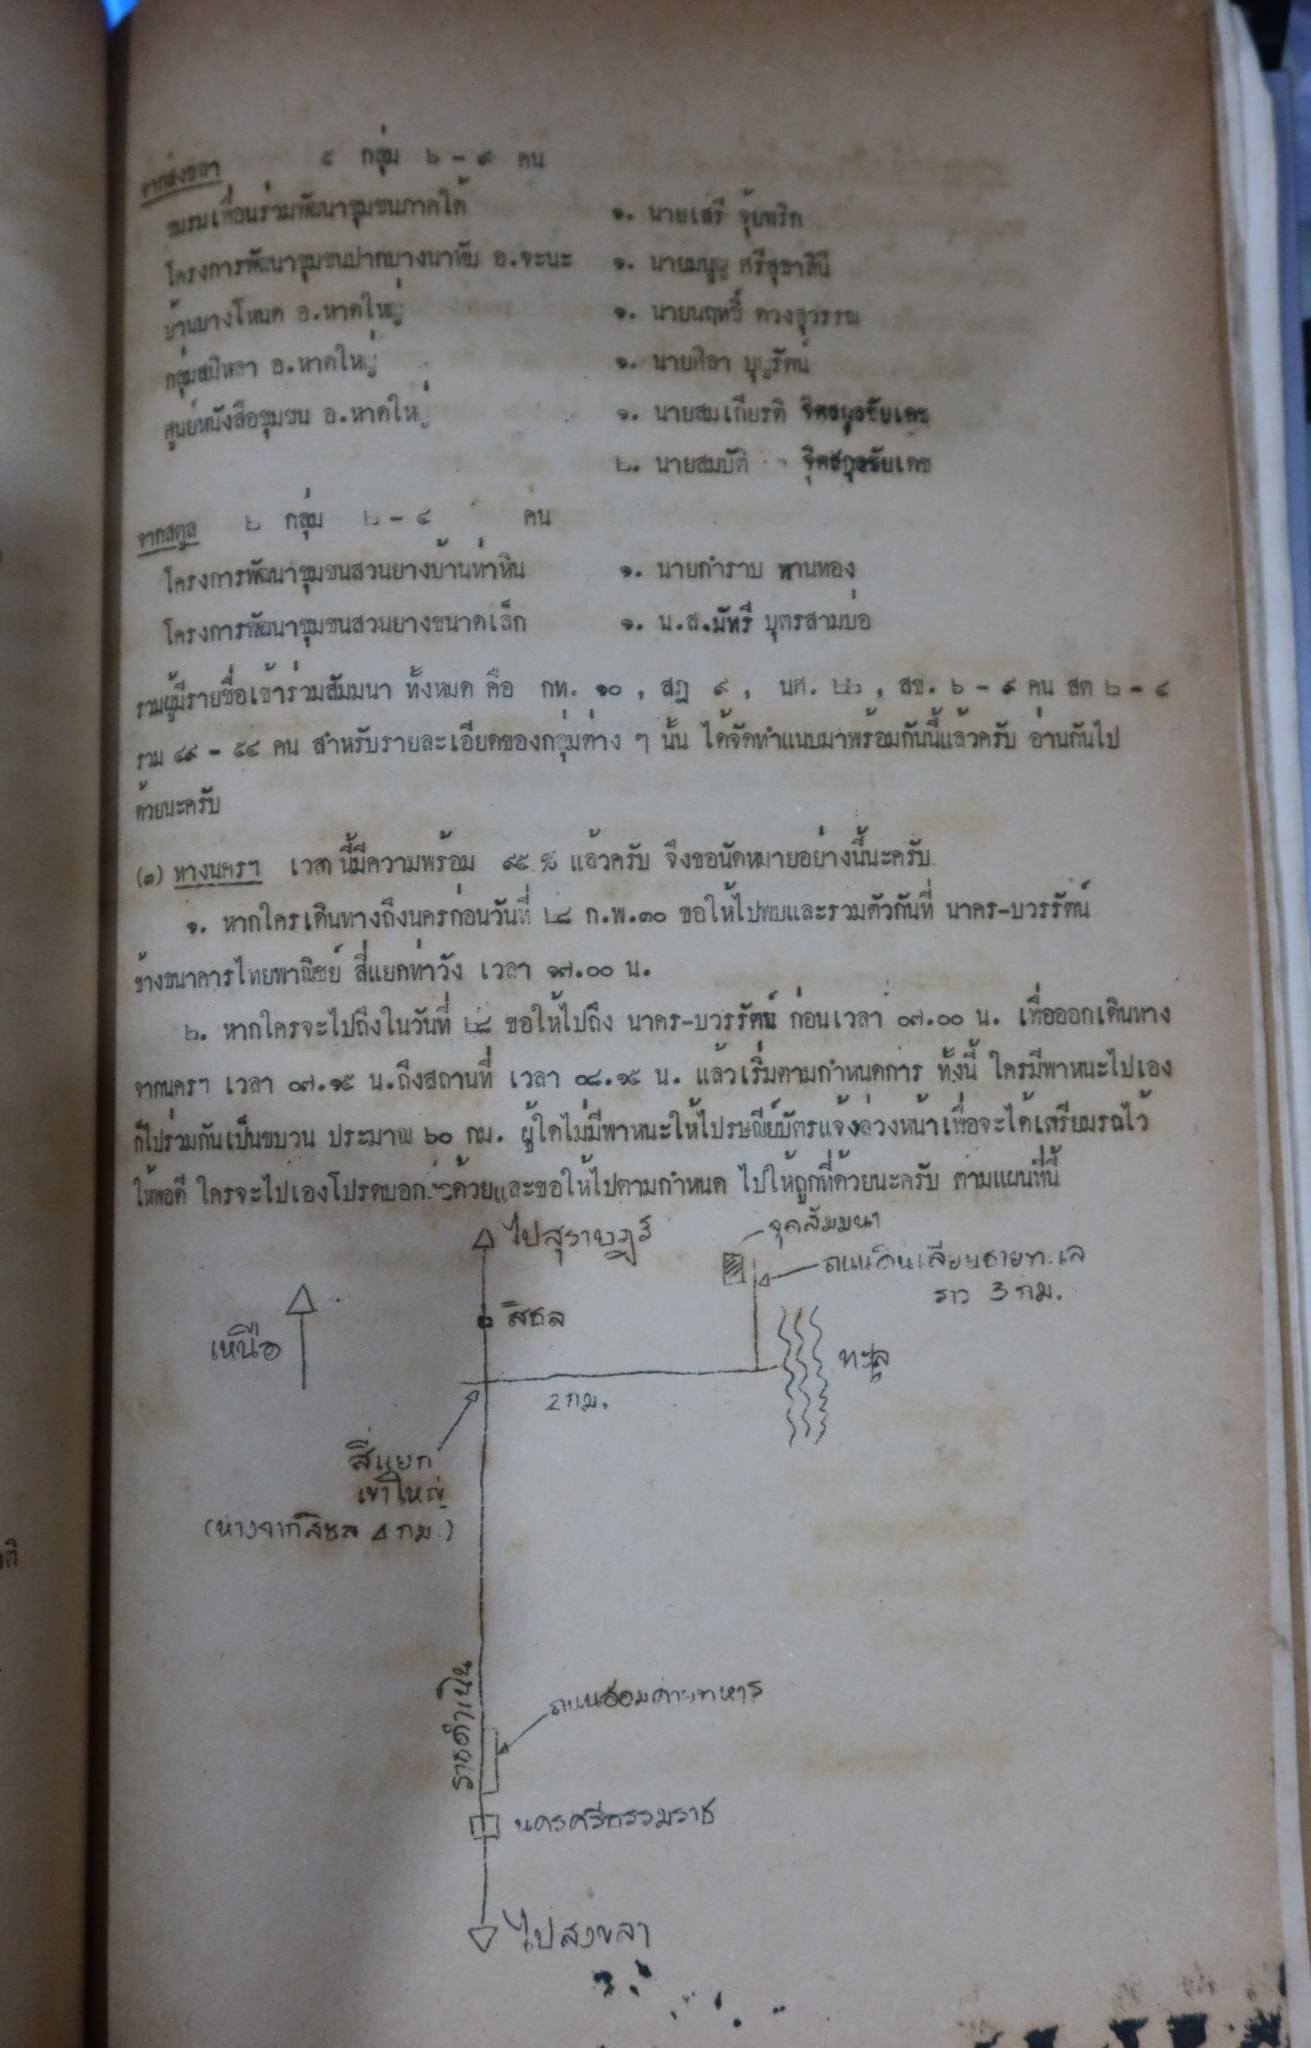 จากสงขลา ๕ กลุ่ม ๖ - ๙ คน
ชมรมเพื่อนร่วมพัฒนาชุมชนภาคใต้ ๑. นายเสรี จุ้ยพริก
โครงการพัฒนาชุมชนปากบางนาทับ อ.จะนะ ๑. นายมนูญ ศรีสุชาสินี
บ้านบางโหนด อ.หาดใหญ่ ๑. นายนฤทธิ์ ดวงสุวรรณ
กลุ่มสมิหลา อ.หาดใหญ่ ๑. นายศิลา บุญรัตน์
ศูนย์หนังสือชุมชน อ.หาดใหญ่ ๑. นายสมเกียรติ จิตสกุลชัยเดช
๒. นายสมบัติ จิตสกุลชัยเดช
จากสตูล ๒ กลุ่ม ๒ - ๔ คน
โครงการพัฒนาชุมชนสวนยางบ้านท่าหิน ๑. นายกำราบ พานทอง
โครงการพัฒนาชุมชนสวนยางขนาดเล็ก ๑. น.ส.มัทรี บุตรสามบ่อ
รวมผู้มีรายชื่อเข้าร่วมสัมมนา ทั้งหมด คือ กท. ๑๐ , สฎ ๙ , นศ. ๒๒ , สข. ๖ - ๙ คน สต ๒ - ๔
รวม ๔๙ - ๕๔ คน สำหรับรายละเอียดของกลุ่มต่าง ๆ นั้น ได้จัดทำแนบมาพร้อมกันนี้แล้วครับ อ่านกันไป
ด้วยนะครับ
(๑) ทางนครฯ เวลานี้มีความพร้อม ๙๕ % แล้วครับ จึงขอนัดหมายอย่างนี้นะครับ
๑. หากใครเดินทางถึงนครก่อนวันที่ ๒๘ ก.พ.๓๐ ขอให้ไปพบและรวมตัวกันที่ นาคร-บวรรัตน์
ข้างธนาคารไทยพาณิชย์ สี่แยกท่าวัง เวลา ๑๗.๐๐ น.
๒. หากใครจะไปถึงในวันที่ ๒๘ ขอให้ไปถึง นาคร-บวรรัตน์ ก่อนเวลา ๐๗.๐๐ น. เพื่อออกเดินทาง
จากนครฯ เวลา ๐๗.๑๕ น.ถึงสถานที่ เวลา ๐๘.๑๕ น. แล้วเริ่มตามกำหนดการ ทั้งนี้ ใครมีพาหนะไปเอง
ก็ไปร่วมกันเป็นขบวน ประมาณ ๖๐ กม. ผู้ใดไม่มีพาหนะให้ไปรษณีย์บัตรแจ้งล่วงหน้าเพื่อจะได้เตรียมรถไว้
ให้พอดี ใครจะไปเองโปรดบอก ด้วยและขอให้ไปตามกำหนด ไปให้ถูกที่ด้วยนะครับ ตามแผนที่นี้
ไปสุราษฎร์
จุดสัมมนา
ถนนดินเลียบชายทะเล
ราว 3 กม.
สิชล
เหนือ
ทะเล
2 กม.
สี่แยก
เขาใหญ่
(ห่างจากสิชล ๔ กม.)
ราชดำเนิน
ถนนอ้อมค่ายทหาร
นครศรีธรรมราช
ไปสงขลา